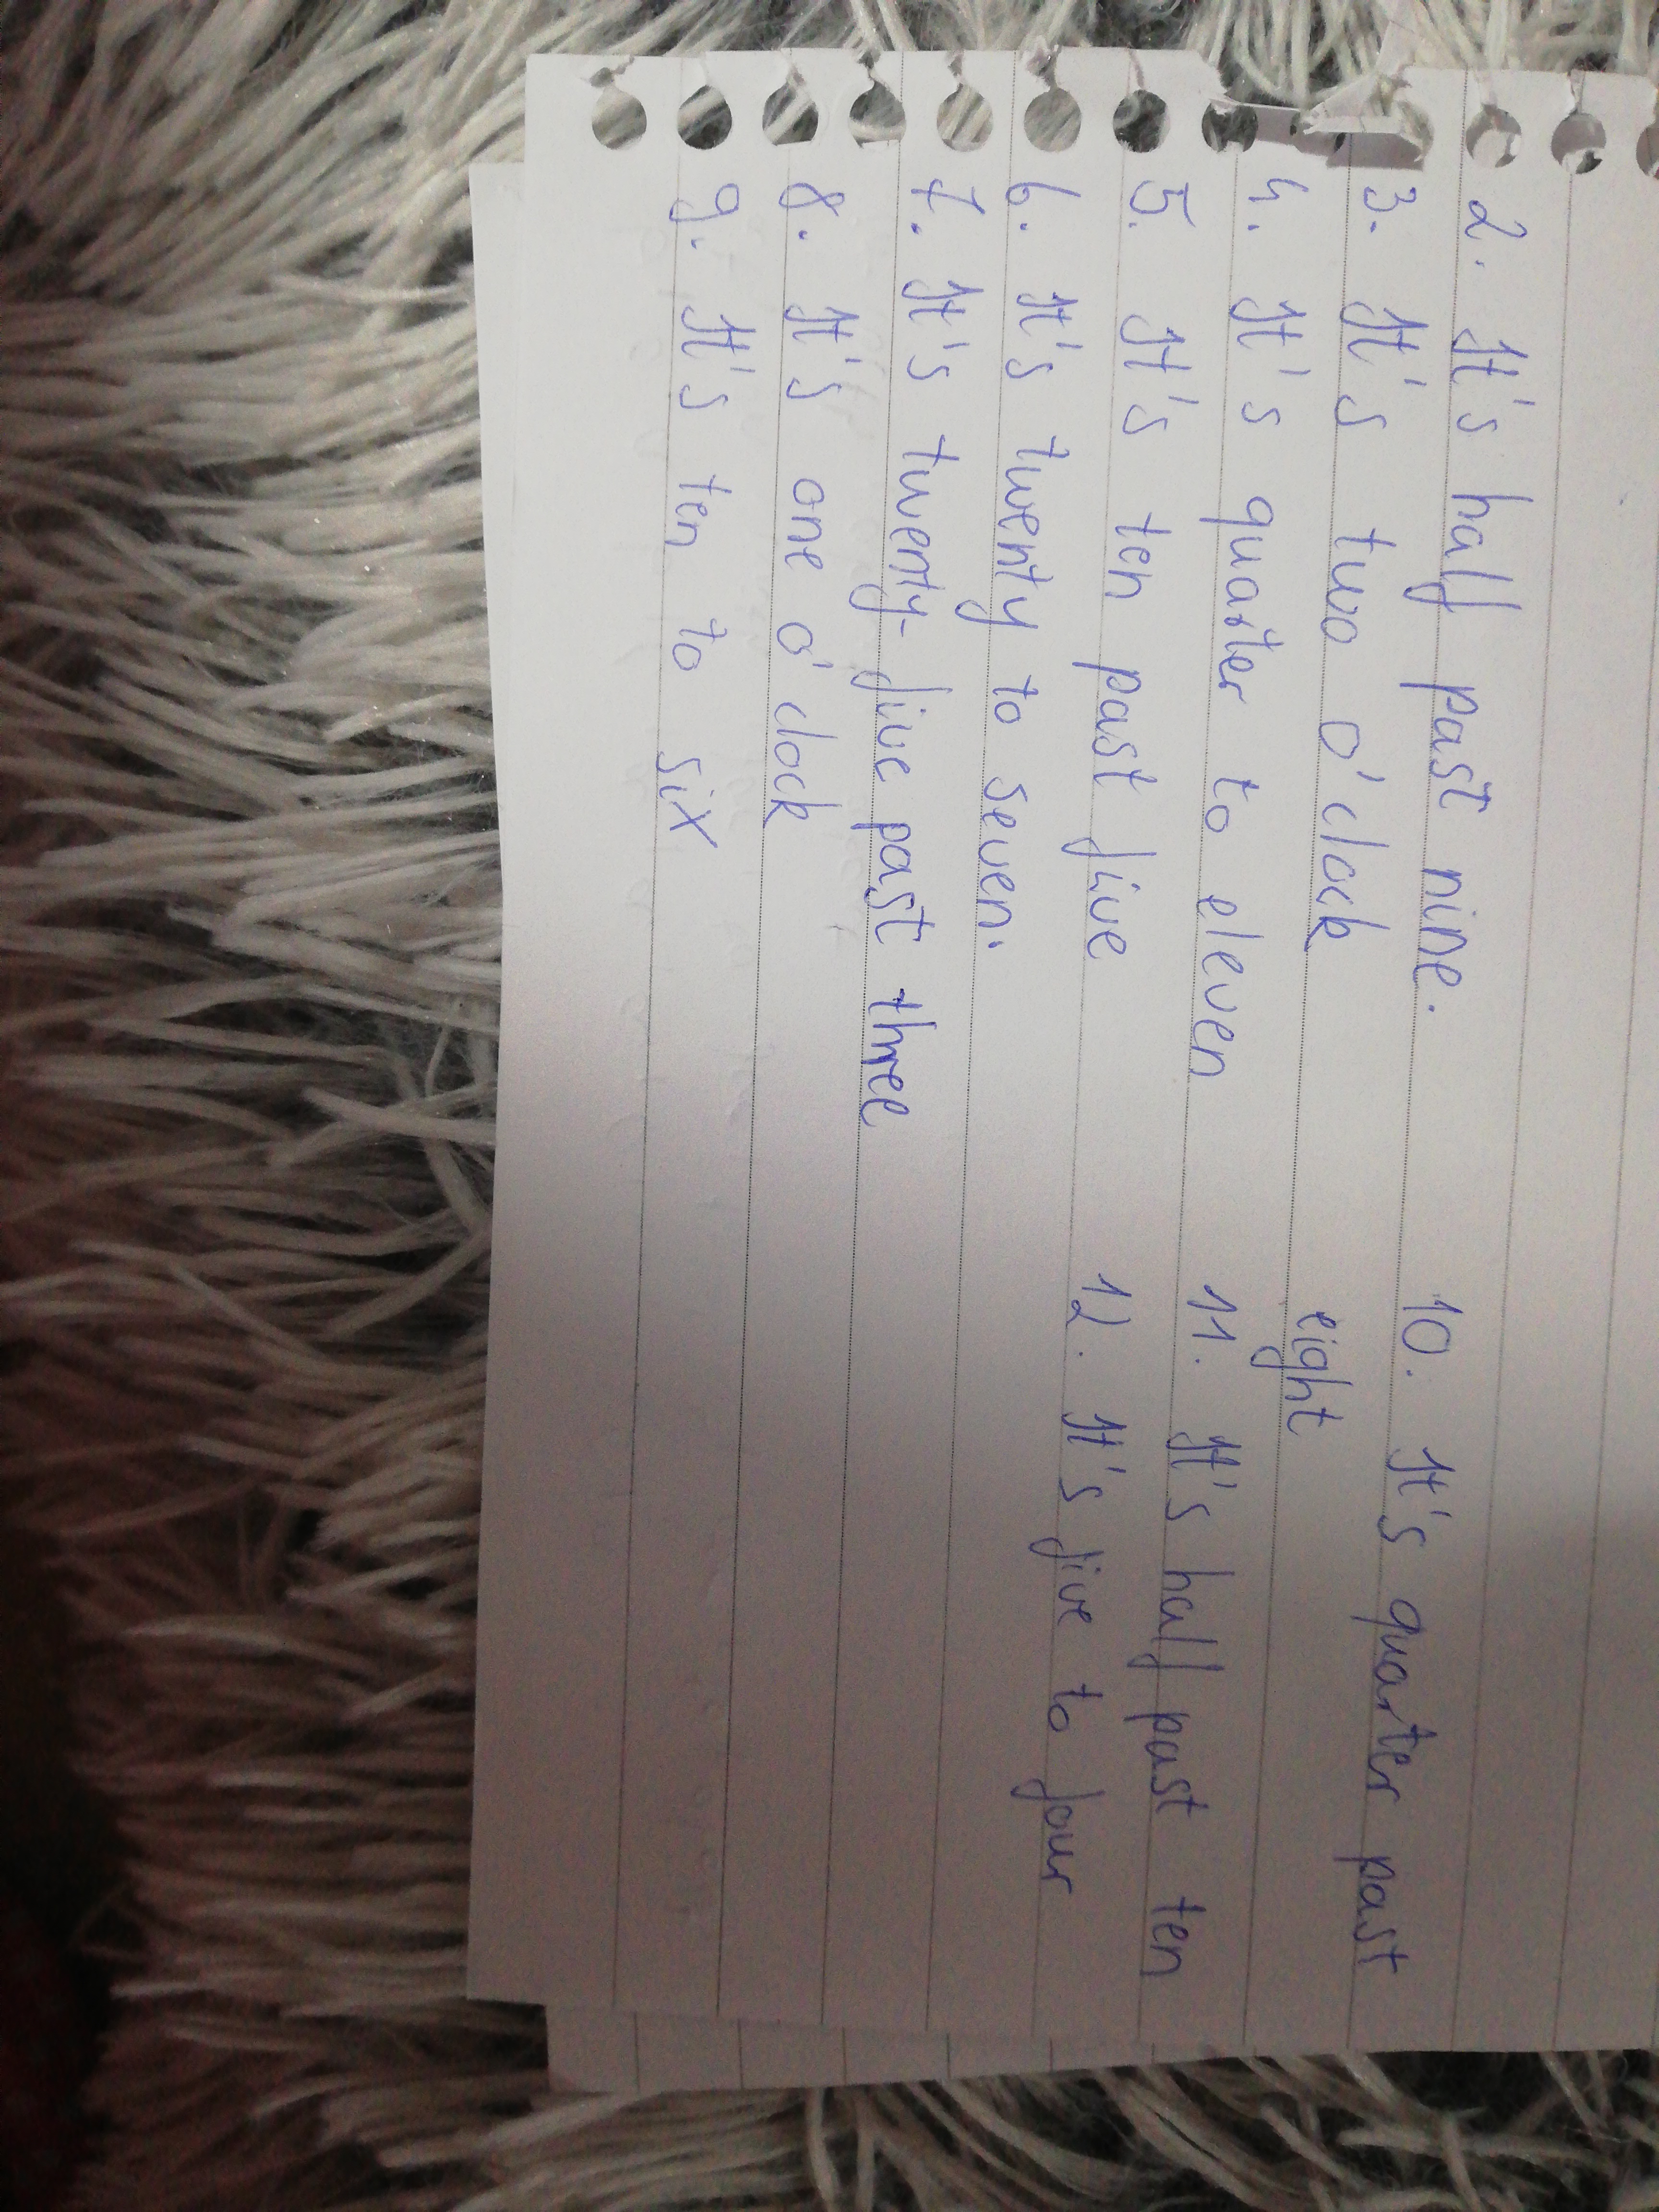 2. It's half past nine.
3. It's two o'clock
4. It's quarter to eleven
5. It's ten past five
6. It's twenty to seven.
7. It's twenty-five past three
8. It's one o'clock
9. It's ten to six
10. It's quarter past
eight
11. It's half past ten
12. It's five to four